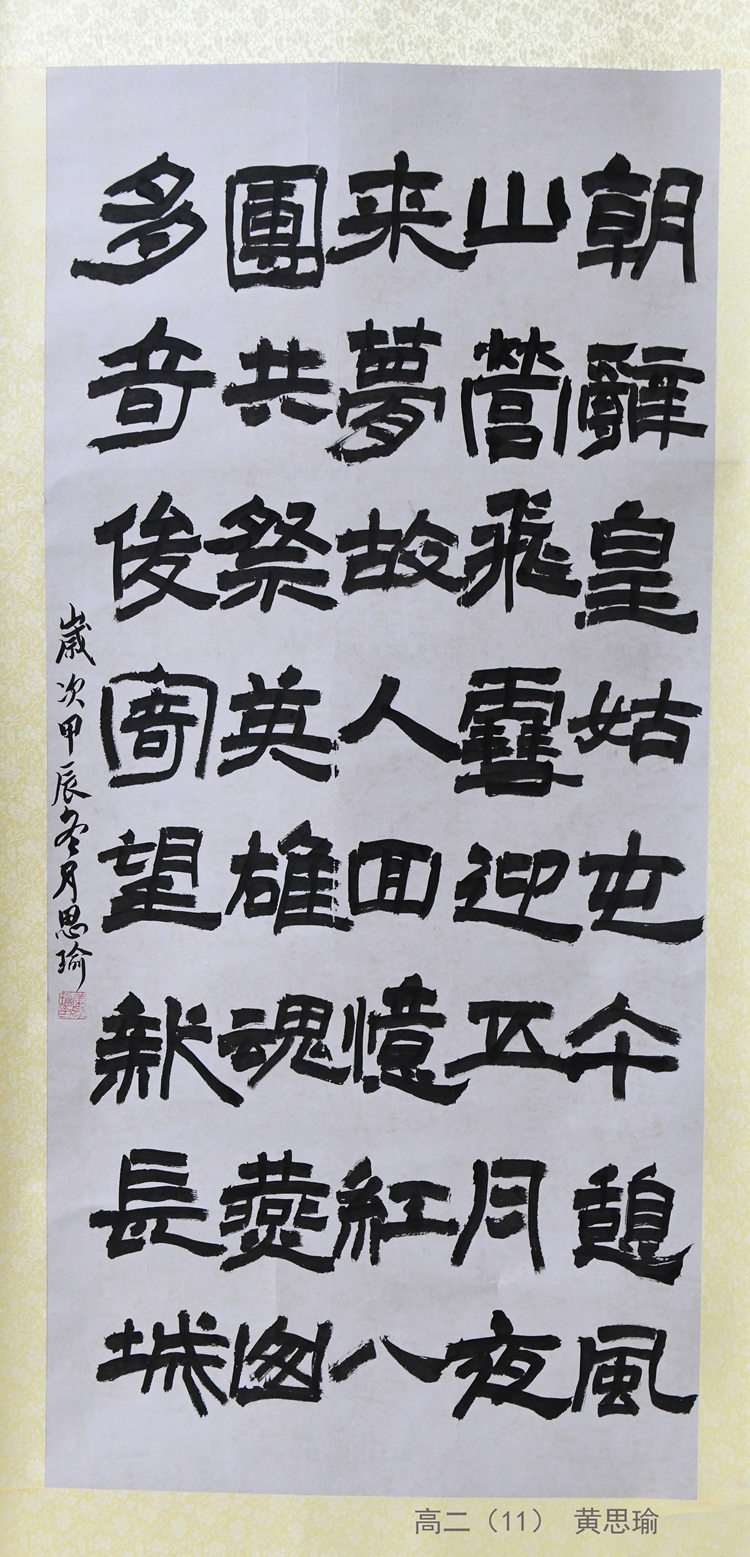 朝辭皇姑屯午憩風
山營飛雪迎五月夜
来夢故人回憶紅八
團共祭英雄魂燕囱
多奇俊寄望新長城
歲次甲辰冬月思瑜
高二（11） 黄思瑜